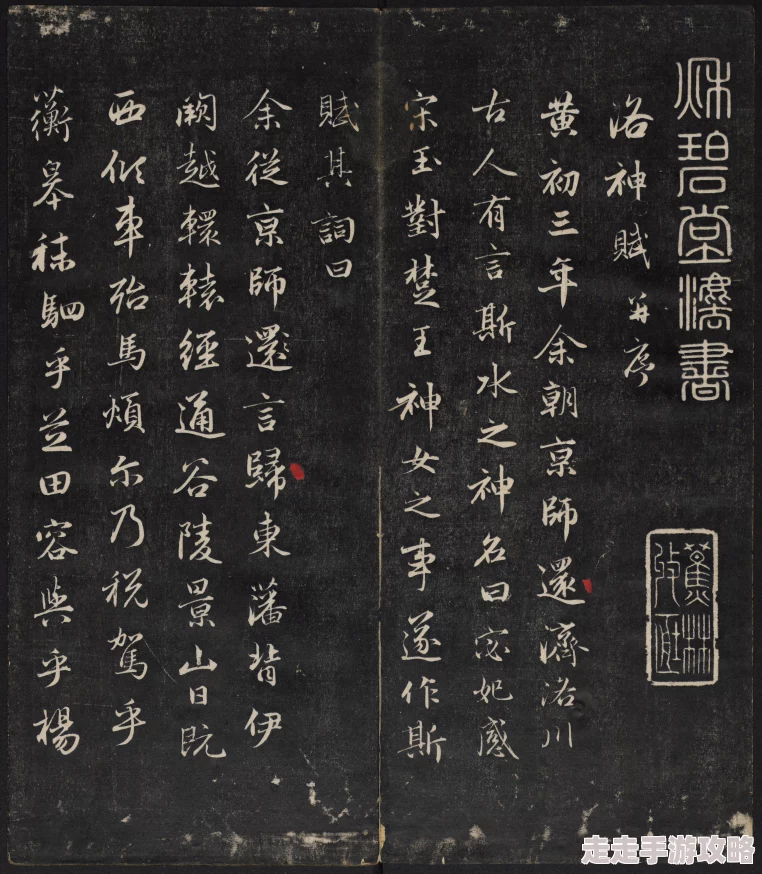 秌碧堂灋書
蕉林
洛神賦并序
黃初三年余朝京師還濟洛川
古人有言斯水之神名曰宓妃感
宋玉對楚王神女之事遂作斯
賦其詞曰
余從京師還言歸東藩背伊
闕越轘轅經通谷陵景山日既
西傾車殆馬煩尔乃税駕乎
蘅皋秣駟乎芝田容與乎楊
走走手游攻略